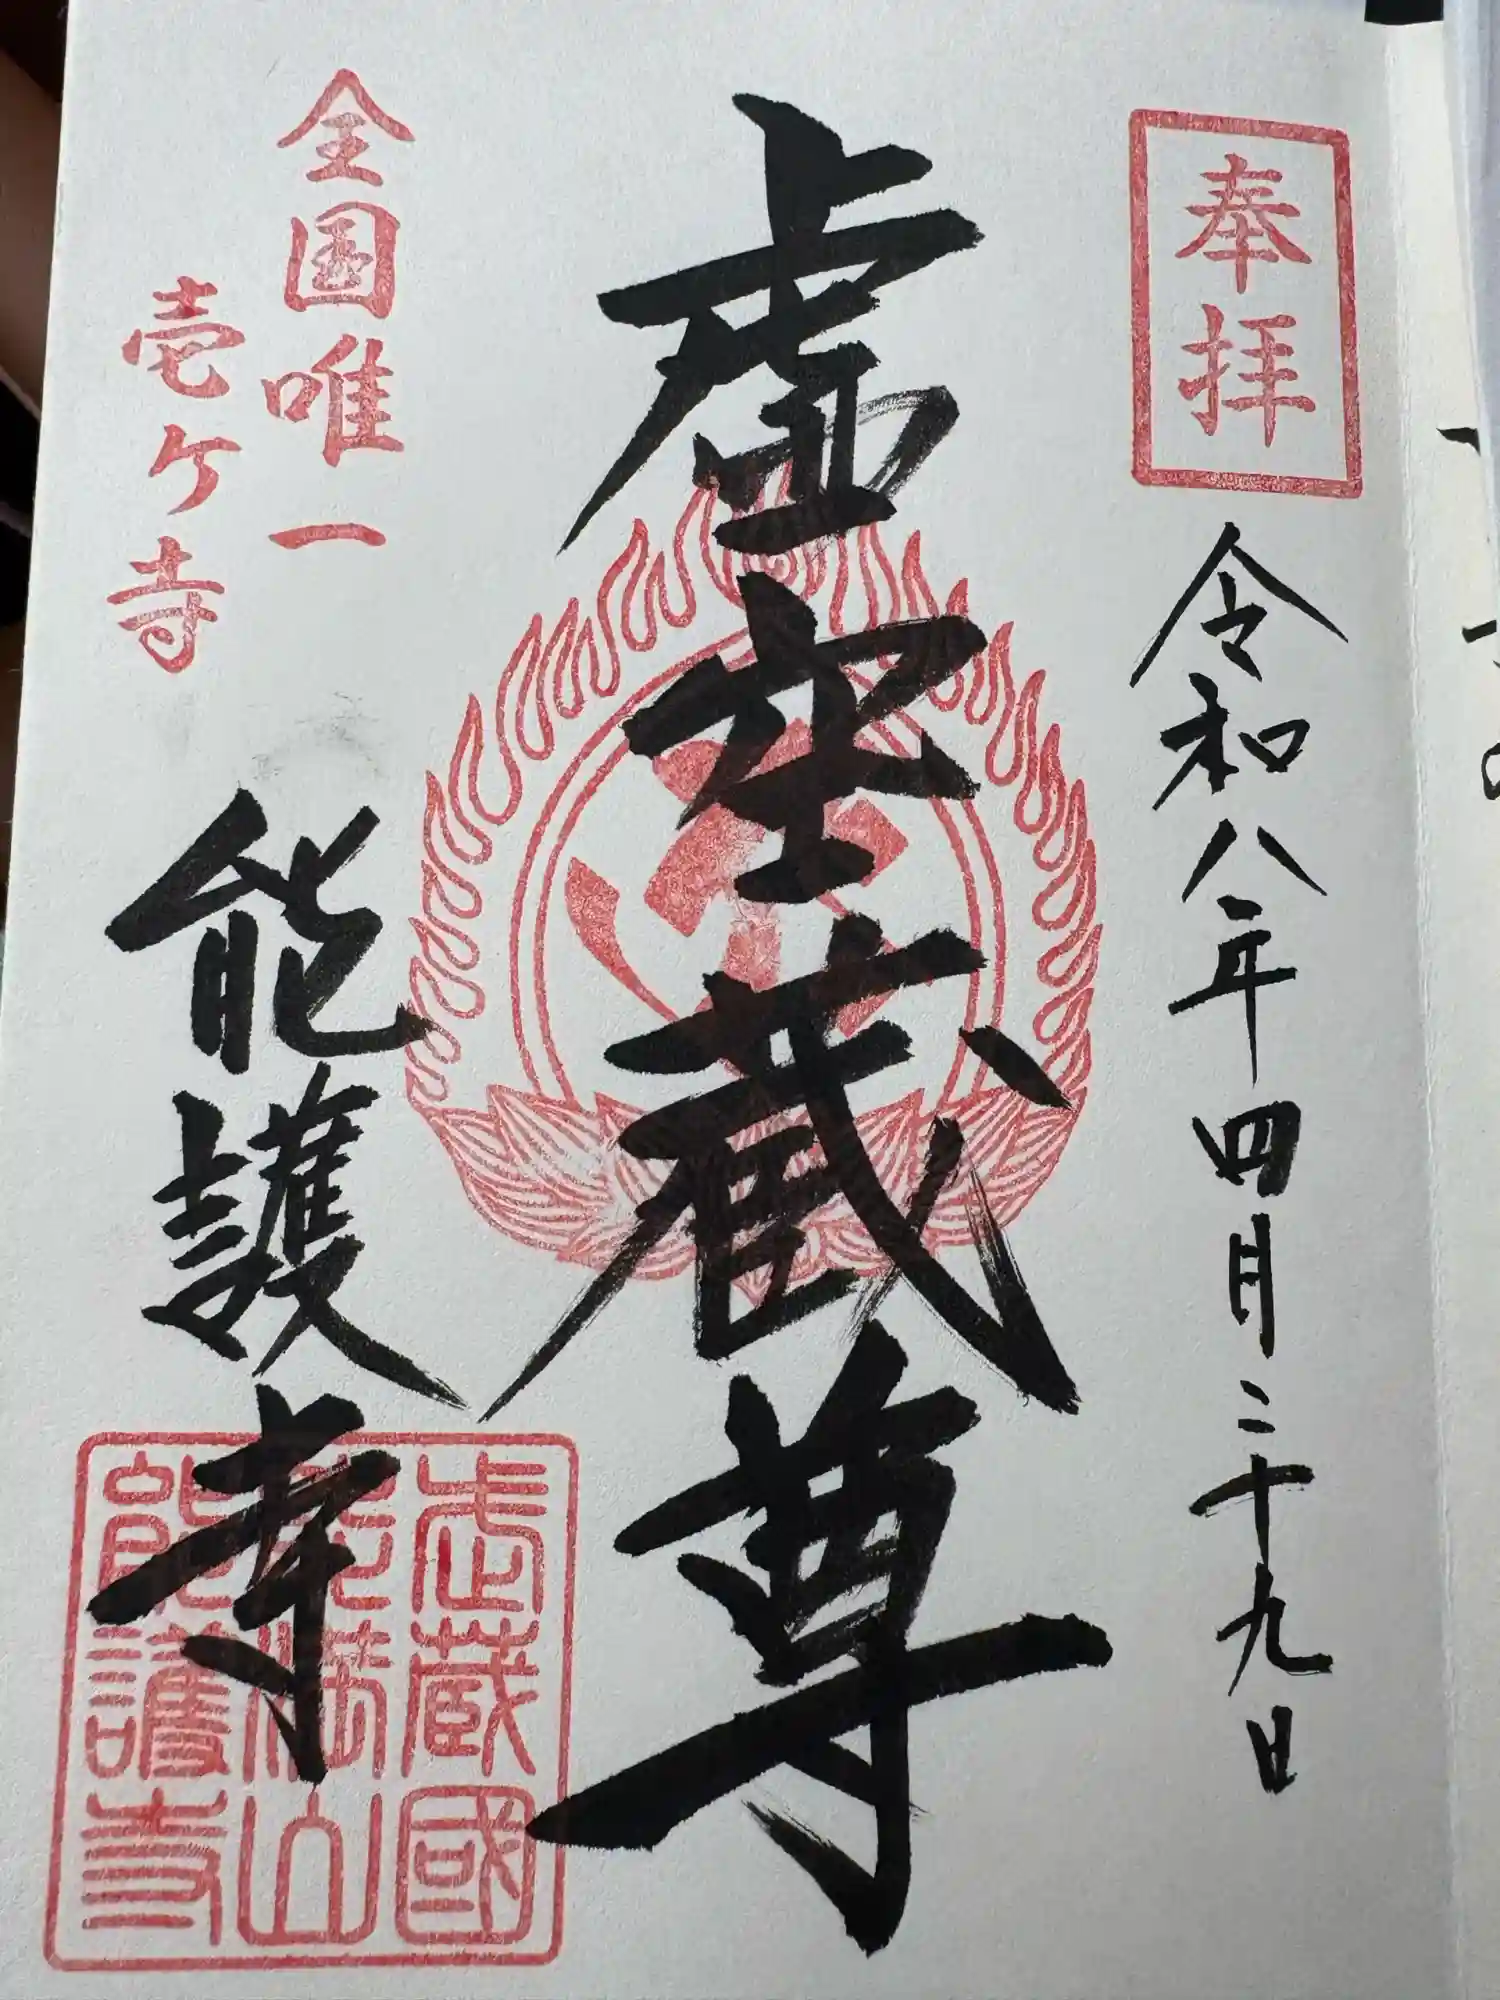 奉拝
令和八年四月二十九日
虚空蔵尊
全国唯一
壱ケ寺
能護寺
武蔵國
能満山
能護寺